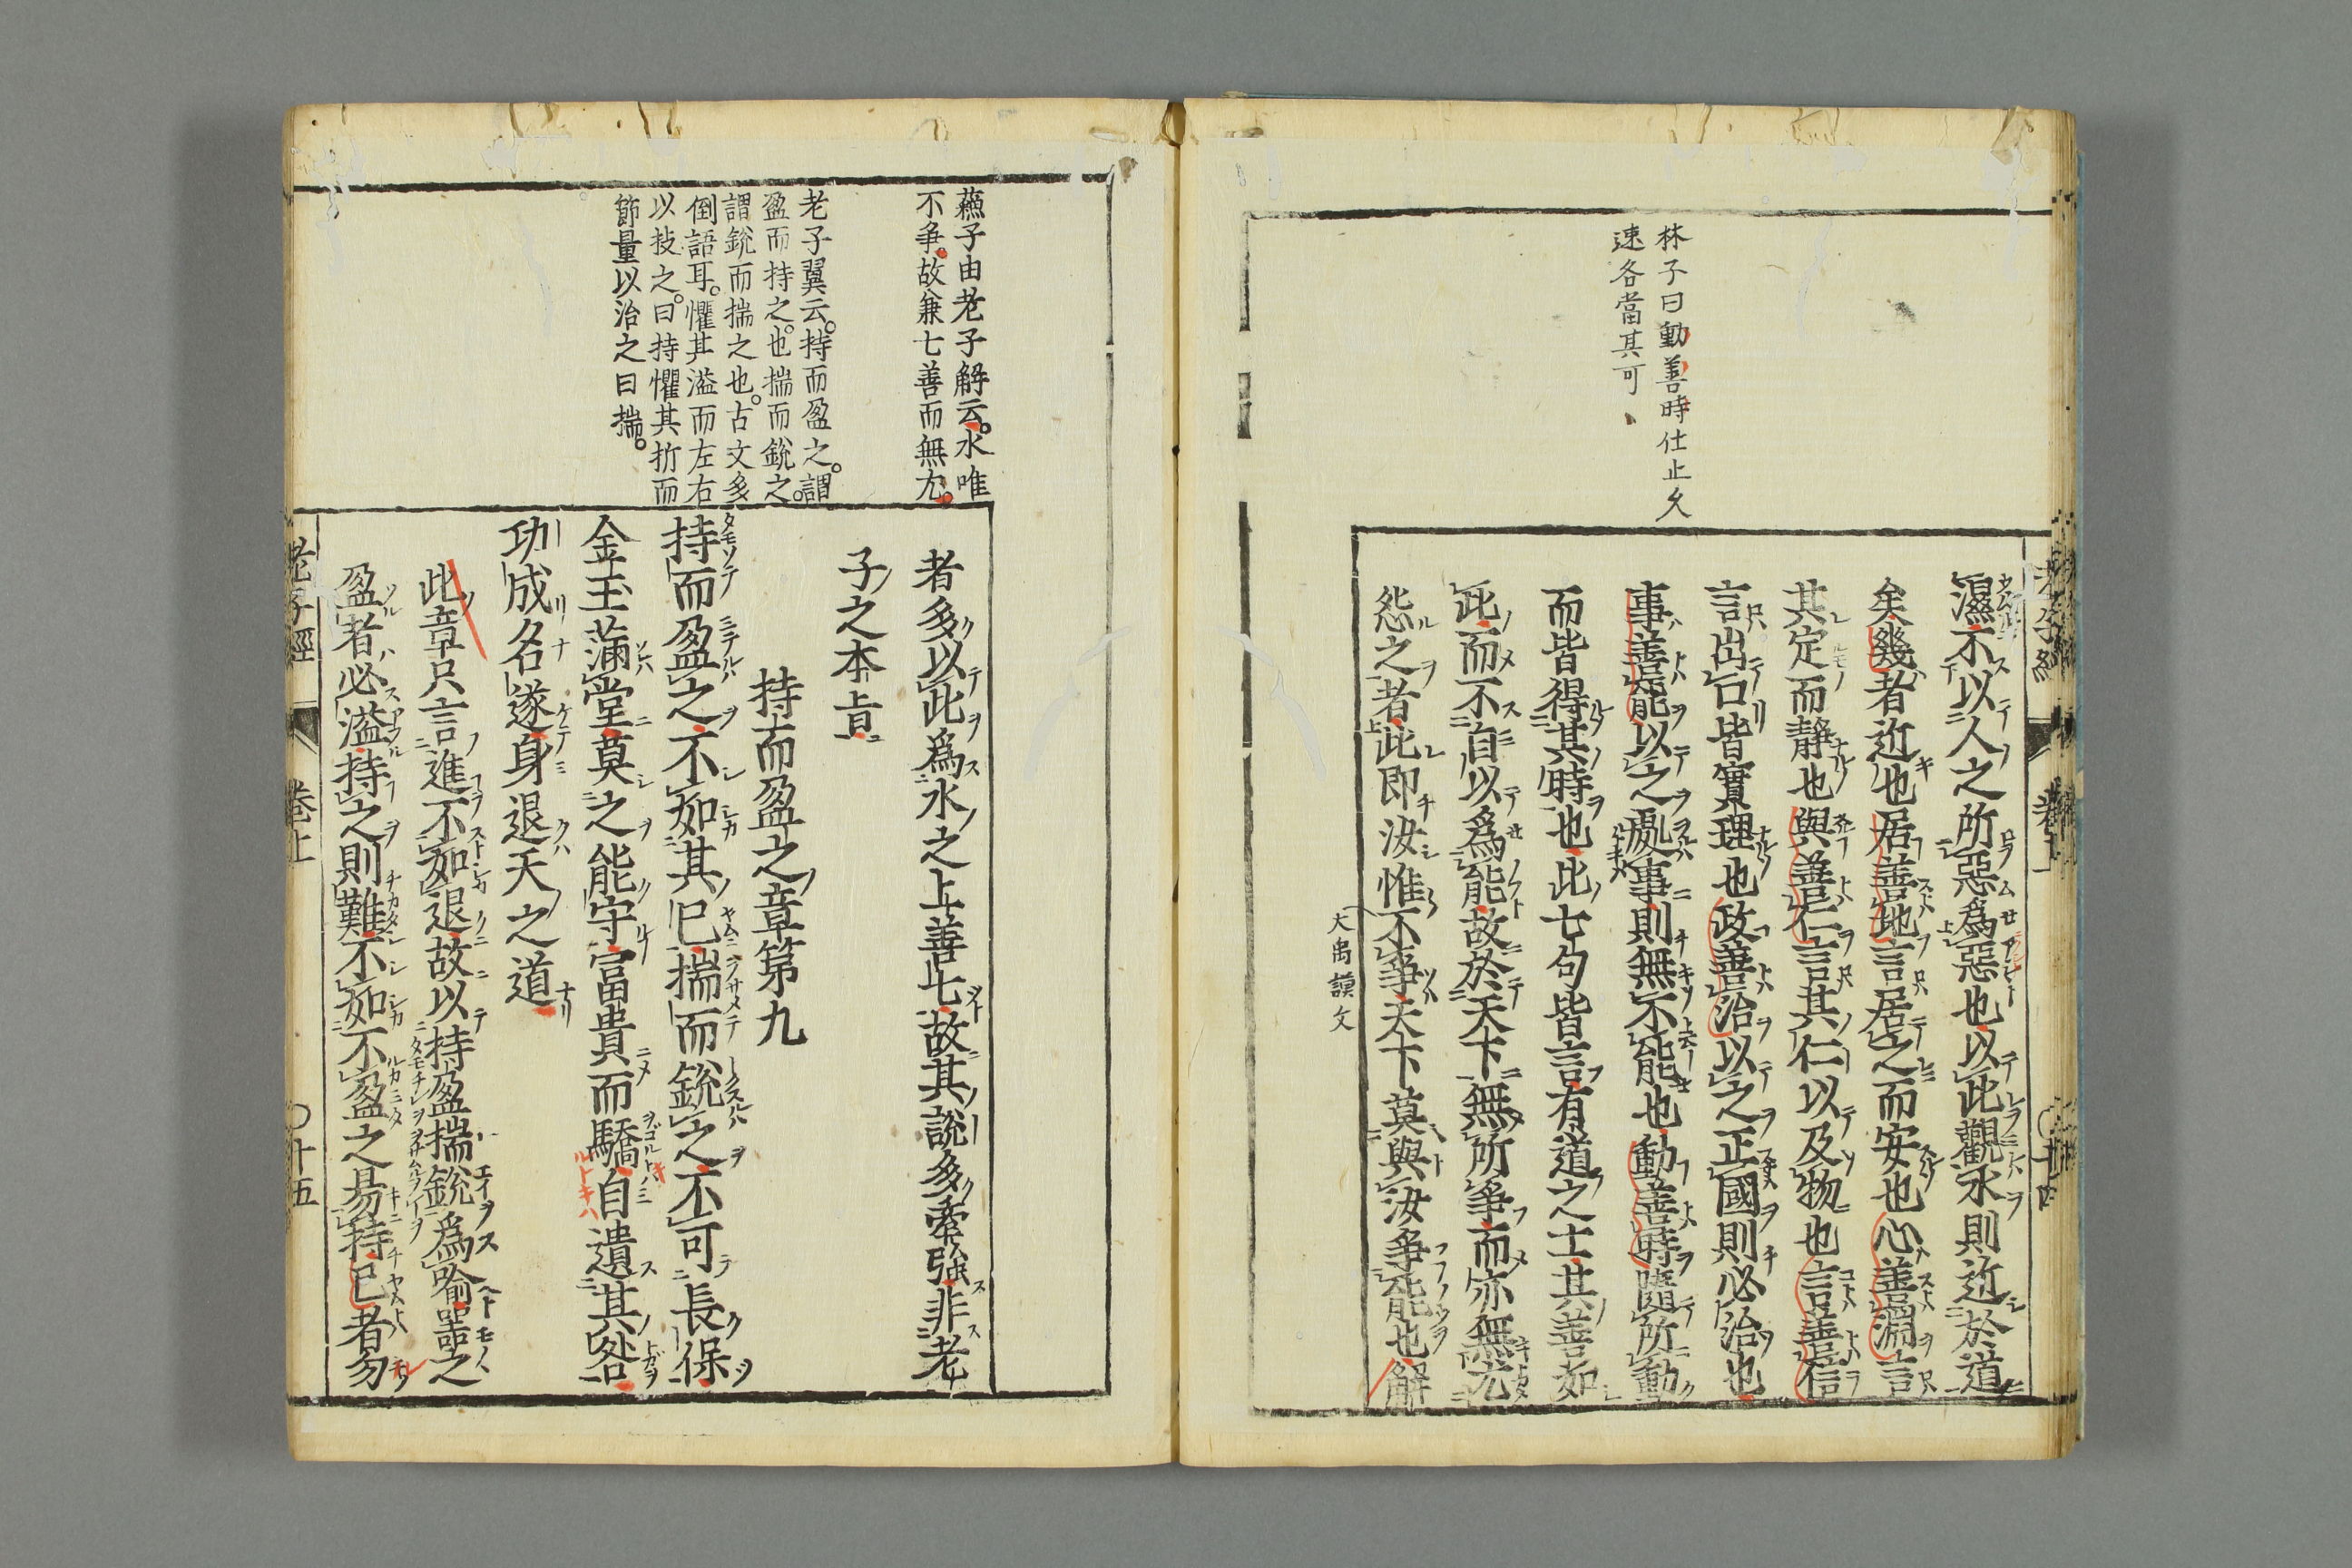 林子曰動善時仕止久
速各當其可
濕不以人之所惡爲惡也以此觀水則近於道
矣幾者近也居善地言居之而安也心善淵言
其定而靜也與善仁言其仁以及物也言善信
言出口皆實理也政善治以之正國則必治也
事善能以之處事則無不能也動善時隨所動
而皆得其時也此七句皆言有道之士其善如
此而不自以爲能故於天下無所爭而亦無尤
怨之者此即汝惟不爭天下莫與汝爭能也解
大禹謨文
蘓子由老子解云水唯
不爭故兼七善而無尤
老子翼云持而盈之謂
盈而持之也揣而銳之
謂銳而揣之也古文多
倒語耳懼其溢而左右
以扶之曰持懼其折而
節量以治之曰揣
者多以此爲水之上善七故其說多牽強非老
子之本旨
持而盈之章第九
持而盈之不如其已揣而銳之不可長保
金玉滿堂莫之能守富貴而驕自遺其咎
功成名遂身退天之道
此章只言進不如退故以持盈揣銳爲喻器之
盈者必溢持之則難不如不盈之易持已者勿
老子經
卷上
〇十五